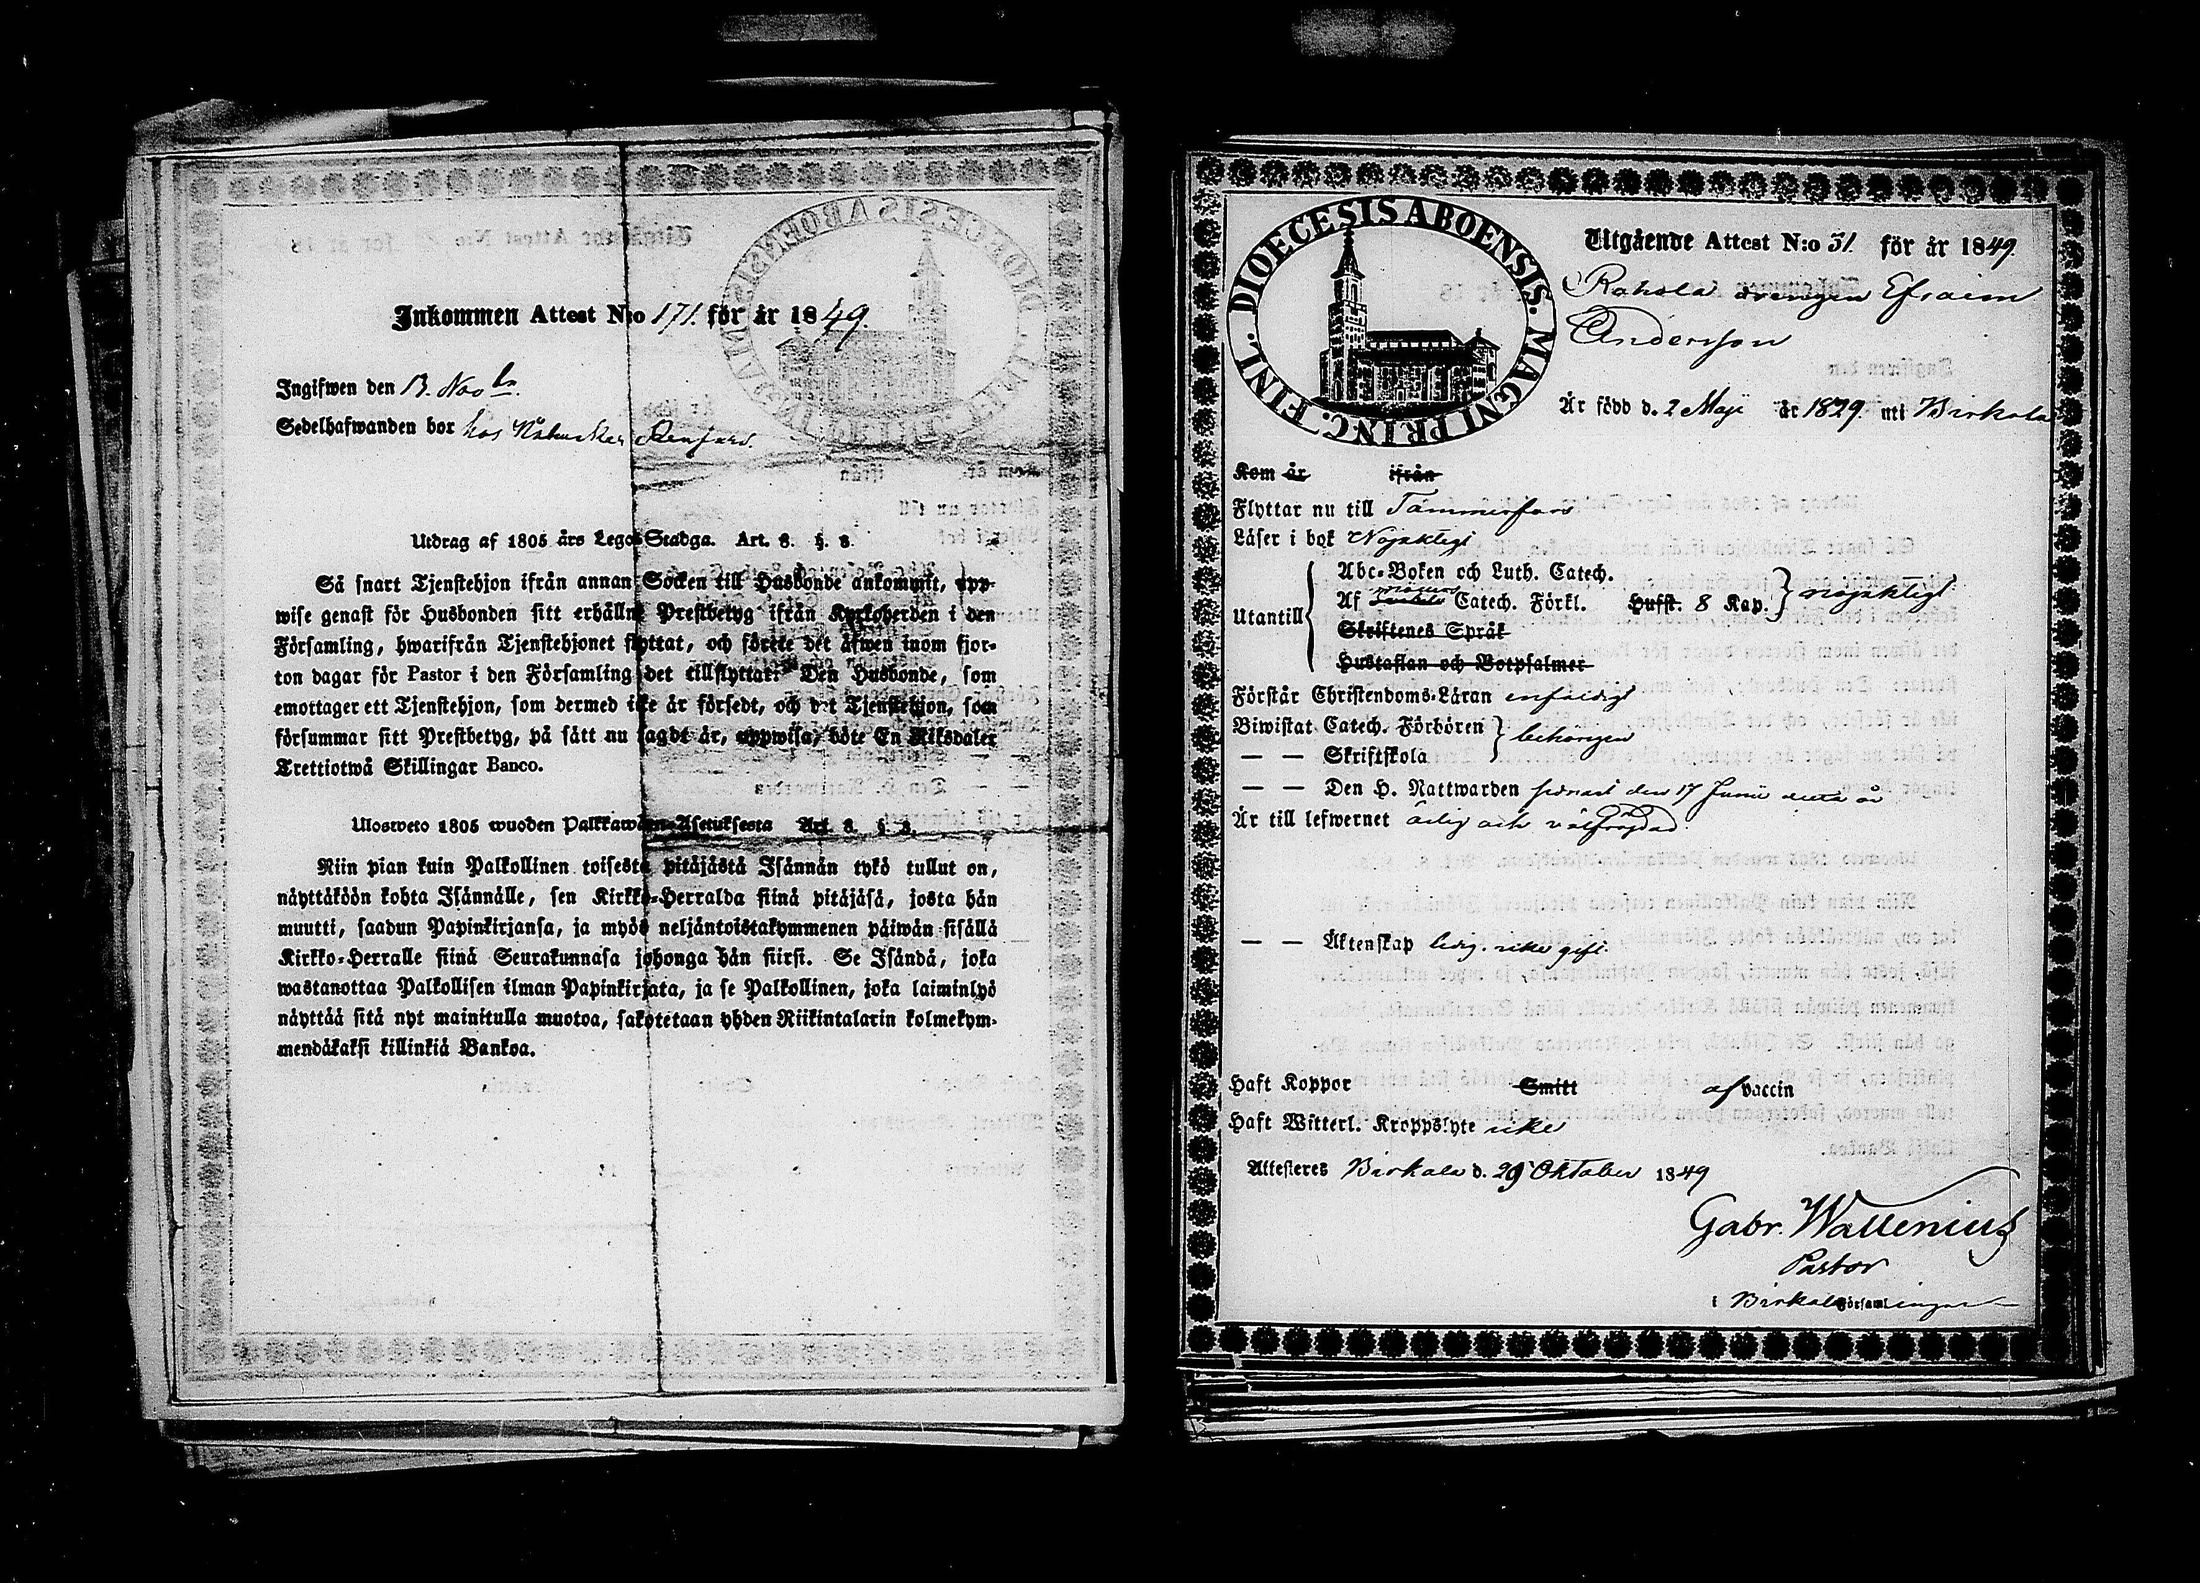 Inkommen Attest N:o 171. för år 1849.
Ingifwen den 13. Nov br.
Sedelhafwanden bor hos
Utdrag af 1805 års Lego-Stadga. Art. 8. §. 8.
Så snart Tjenstehjon ifrån annan Socken till Husbonde ankommit, upp-
wise genast för Husbonden sitt erhållne Prestbetyg ifrån Kyrkoherden i den
Församling, hwarifrån Tjenstehjonet flyttat, och förete det äfwen inom fjor-
ton dagar för Pastor i den Församling det tillflyttat. Den Husbonde, som
emottager ett Tjenstehjon, som dermed icke är försedt, och det Tjenstehjon, som
försummar sitt Prestbetyg, på sätt nu sagdt är, uppwisa, böte En Riksdaler
Trettiotwå Skillingar Banco.
Ulosweto 1805 wuoden Palkkawäen-Asetuksesta Art. 8. §. 8.
Niin pian kuin Palkollinen toisesta pitäjästä Isännän tykö tullut on,
näyttäköön kohta Isännälle, sen Kirkko-Herralda siinä pitäjäsä, josta hän
muutti, saadun Papinkirjansa, ja myös neljäntoistakymmenen päiwän sisällä
Kirkko-Herralle siinä Seurakunnasa johonga hän siirsi. Se Isändä, joka
wastanottaa Palkollisen ilman Papinkirjata, ja se Palkollinen, joka laiminlyö
näyttää sitä nyt mainitulla muotoa, sakotetaan yhden Riikintalarin kolmekym-
mendäkaksi killinkiä Bankoa.
DIOECESIS ABOENSIS. MAGNI PRINC. FINL.
Utgående Attest N:o 31. för år 1849.
Rahola drengen Efraim
Andersson
Är född d. 2 Maji år 1829. uti Birkala
Kom år ifrån
Flyttar nu till Tammerfors
Läser i bok Nöjaktigt
Abc-Boken och Luth. Catech.
Utantill Af Catech. Förkl. Hufst. 8 Kap. nöjaktigt
Skriftenes Språk
Hustaflan och Botpsalmer
Förstår Christendoms-Läran enfaldigt
Biwistat Catech. Förhören behörigen
— — Skriftskola
— — Den H. Nattwarden senast den 17 Junii detta år
Är till lefwernet ärlig och välfrägdad.
— — Äktenskap ledig. icke gift.
Haft Koppor Smitt af vaccin
Haft Witterl. Kroppslyte icke
Attesteres Birkala d. 29 Oktober 1849
Gabr. Wallenius
Pastor
i Birkala Församlingar